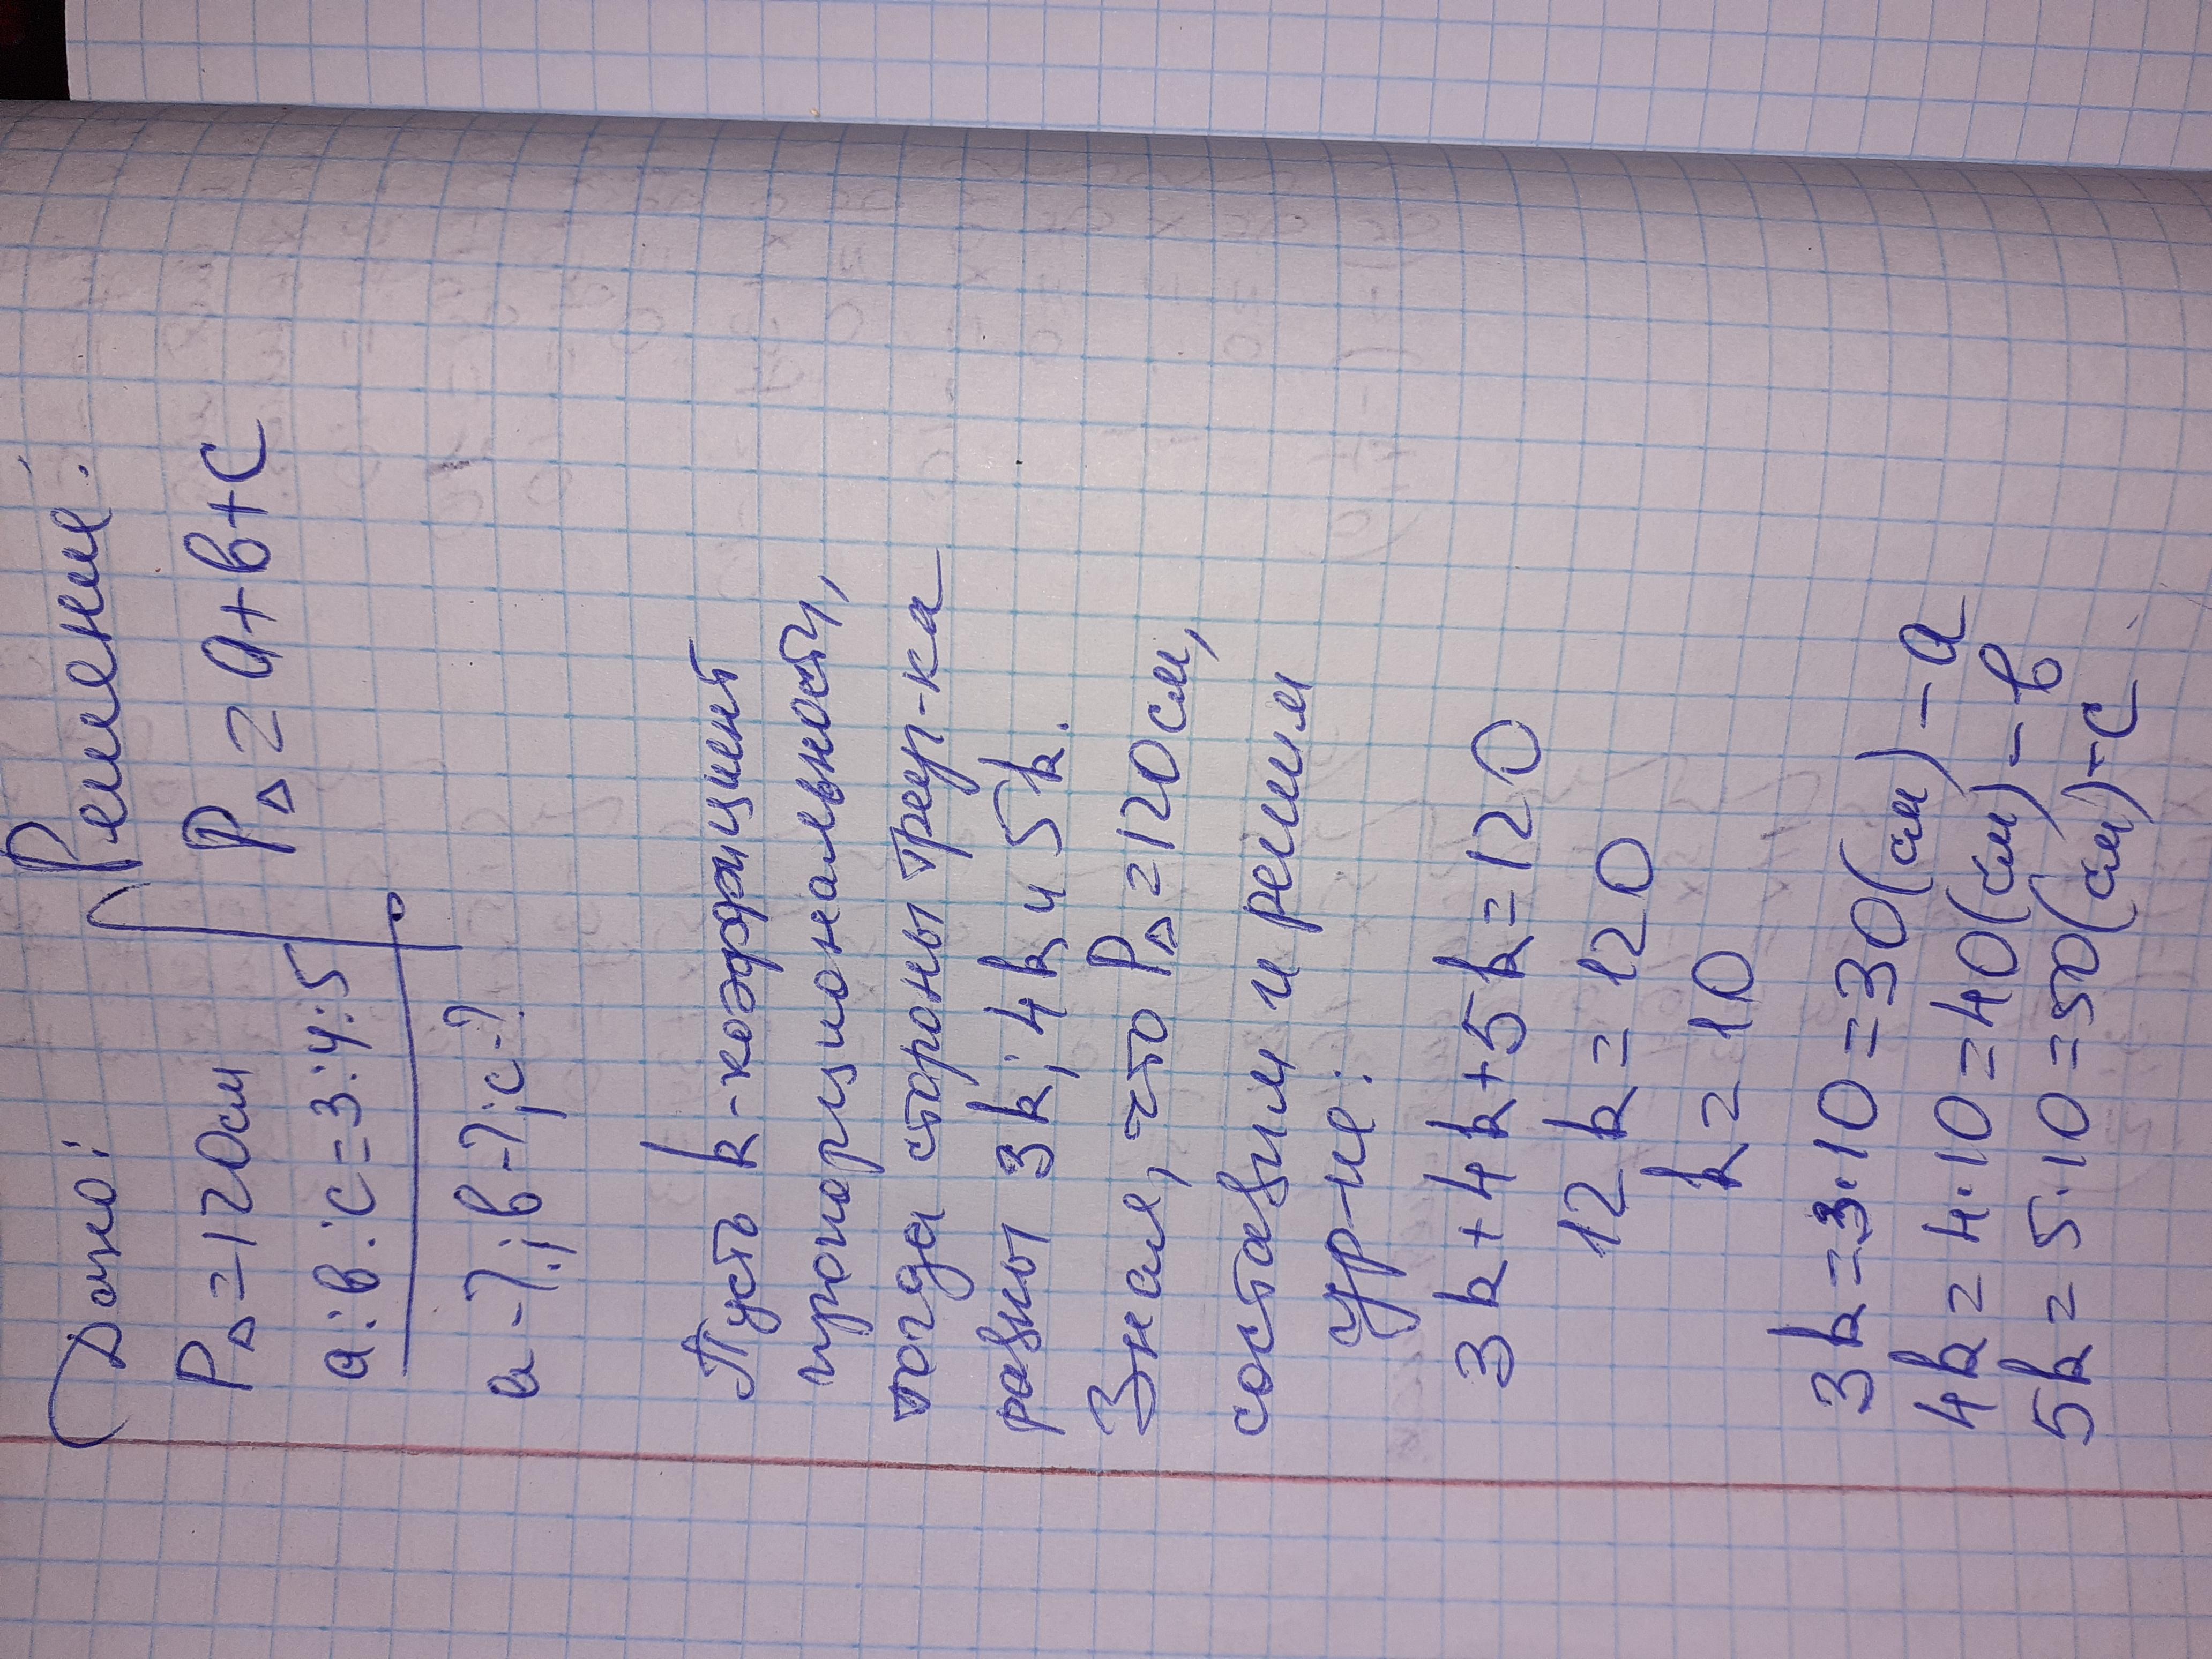 Дано: Решение:
P△=120см P△=a+b+c
a:b:c=3:4:5
a-?; b-?; c-?
Пусть k-коэффициент
пропорциональности,
тогда стороны треуг-ка
равны 3k; 4k и 5k.
Зная, что P△=120см,
составим и решим
ур-ие:
3k+4k+5k=120
12k=120
k=10
3k=3·10=30(см)-a
4k=4·10=40(см)-b
5k=5·10=50(см)-c